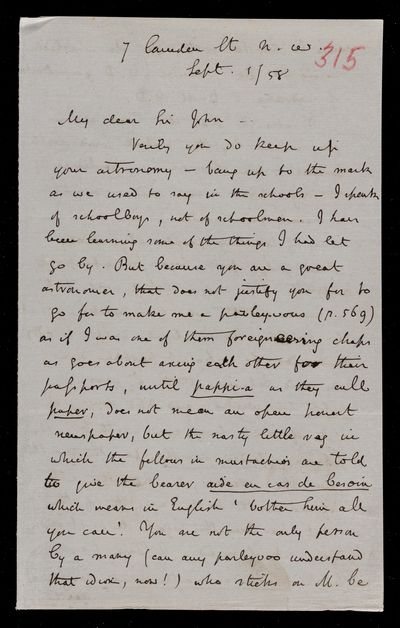 7 Camden St N. W.
315
Sept. 1/58
My dear Sir John –
Verily you do keep up
your astronomy – bang up to the mark
as we used to say in the schools – I speak
of schoolboys, not of schoolmen. I have
been learning some of the things I had let
go by. But because you are a great
astronomer, that does not justify you for to
go for to make me a parleyvous (p. 569)
as if I was one of them foreigneering chaps
as goes about axing each other for their
passports, until pappi-a as they call
paper, does not mean an open honest
newspaper, but the nasty little rag in
which the fellows in mustachios are told
to give the bearer aide en cas de besoin
which means in English 'bother him all
you can'. You are not the only person
by a many (can any parleyvoo understand
that idiom, now!) who sticks on M. le